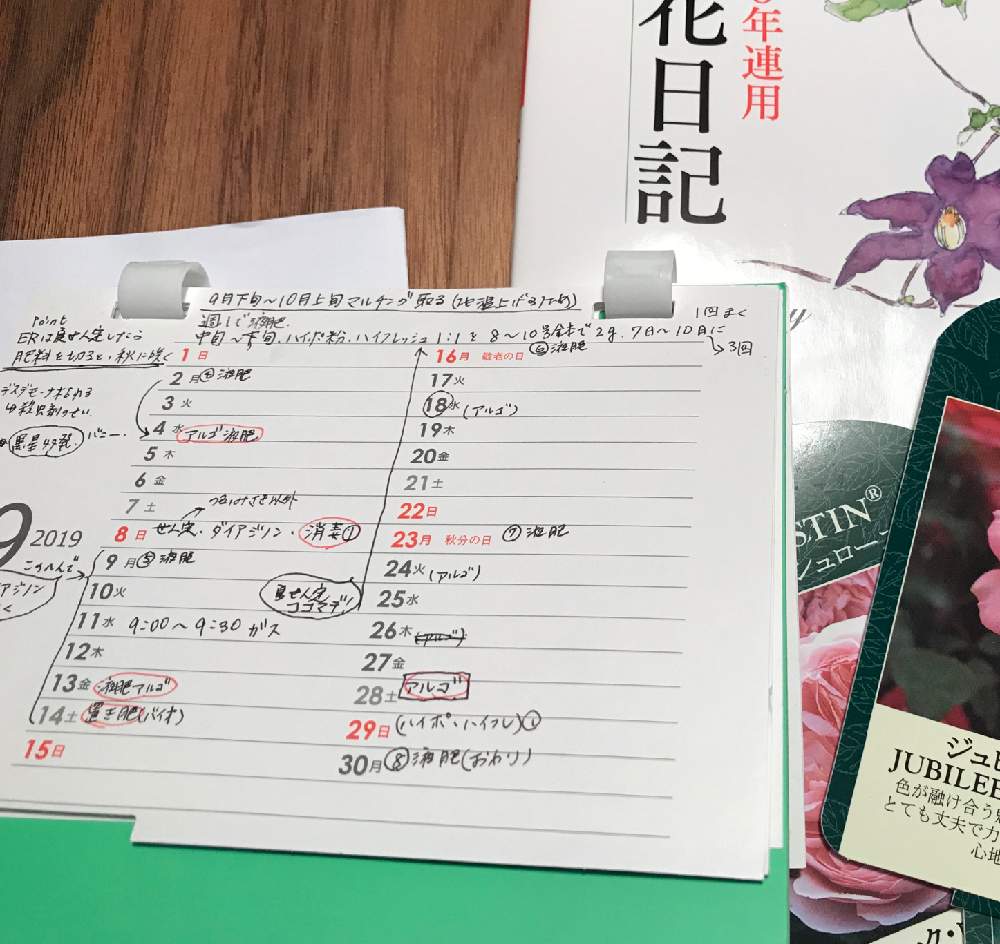 年連用
花日記
9月下旬〜10月上旬マルチング取る(地温上げるため)
週1で液肥.
中旬〜下旬、ハイポ粉、ハイフレッシュ 1:1を 8〜10号鉢で2g. 7日〜10日に
1回まく
→3回
Point
ERは夏せん定したら
肥料を切ると、秋に咲く
黒星
バニー.
9 2019
1日
2月 ④液肥
3火
4水 アルゴ液肥
5木
6金
7土 つるばら以外
8日 せん定. ダイアジノン. 消毒①
9月 ⑤液肥
10火
11水 9:00〜9:30 ガス
12木
13金 液肥アルゴ
14土 置き肥(バイオ)
15日
16月 敬老の日 ⑥液肥
17火
18水 (アルゴ)
19木
20金
21土
22日
23月 秋分の日 ⑦液肥
24火 (アルゴ)
25水
26木 (アルゴ)
27金
28土 アルゴ
29日 (ハイポ・ハイフレ)①
30月 ⑧液肥(おわり)
夏せん定
ココマデ!
STIN®
シュロー
ジュビ
JUBILEE
色が融け合う
とても丈夫で
心地